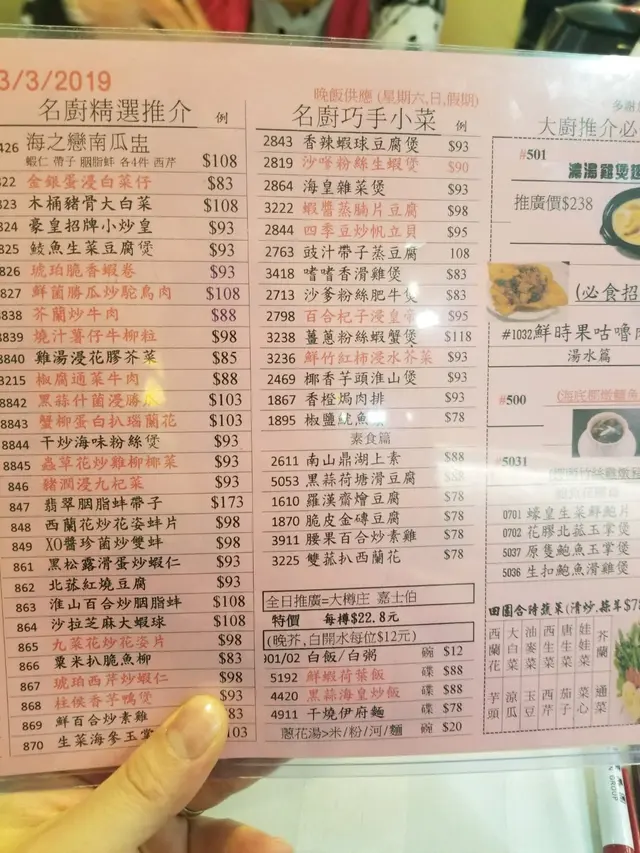 3/3/2019
名廚精選推介 例
426 海之戀南瓜盅
蝦仁 帶子 胭脂蚌 各4件 西芹 $108
822 金銀蛋浸白菜仔 $83
823 木桶豬骨大白菜 $108
824 豪皇招牌小炒皇 $93
825 鯪魚生菜豆腐煲 $93
826 琥珀脆香蝦卷 $93
827 鮮菌勝瓜炒鴕鳥肉 $108
838 芥蘭炒牛肉 $88
8839 燒汁薯仔牛柳粒 $98
8840 雞湯浸花膠芥菜 $85
3215 椒腐通菜牛肉 $88
8842 黑蒜什菌浸勝瓜 $103
8843 蟹柳蛋白扒瑤蘭花 $103
8844 干炒海味粉絲煲 $93
8845 蟲草花炒雞柳椰菜 $93
846 豬潤浸九杞菜 $93
847 翡翠胭脂蚌帶子 $173
848 西蘭花炒花姿蚌片 $98
849 XO醬珍菌炒雙蚌 $98
861 黑松露滑蛋炒蝦仁 $93
862 北菰紅燒豆腐 $93
863 淮山百合炒胭脂蚌 $108
864 沙拉芝麻大蝦球 $108
865 九菜花炒花姿片 $98
866 粟米扒脆魚柳 $83
867 琥珀西芹炒蝦仁 $98
868 柱侯香芋鴨煲 $93
869 鮮百合炒素雞 $83
870 生菜海參玉掌 103
晚飯供應 (星期六,日,假期)
名廚巧手小菜 例
2843 香辣蝦球豆腐煲 $93
2819 沙嗲粉絲生蝦煲 $90
2864 海皇雜菜煲 $93
3222 蝦醬蒸腩片豆腐 $98
2844 四季豆炒帆立貝 $95
2763 豉汁帶子蒸豆腐 108
3418 嗜嗜香滑雞煲 $83
2713 沙爹粉絲肥牛煲 $83
2798 百合杞子浸皇 $95
3238 薑蔥粉絲蝦蟹煲 $118
3236 鮮竹紅柿浸水芥菜 $93
2469 椰香芋頭淮山煲 $93
1867 香橙焗肉排 $93
1895 椒鹽魷魚 $78
素食篇
2611 南山鼎湖上素 $88
5053 黑蒜荷塘滑豆腐 $88
1610 羅漢齋燴豆腐 $78
1870 脆皮金磚豆腐 $78
3911 腰果百合炒素雞 $78
3225 雙菰扒西蘭花 $78
全日推廣=大樽庄 嘉士伯
特價 每樽$22.8元
(晚芥,白開水每位$12元)
901/02 白飯/白粥 碗 $12
5192 鮮蝦荷葉飯 碟 $88
4420 黑蒜海皇炒飯 碟 $88
4911 干燒伊府麵 碟 $78
蔥花湯>米/粉/河/麵 碗 $20
多謝
大廚推介必
#501
濃湯雞煲翅
推廣價$238
(必食招
#1032鮮時果咕嚕肉
湯水篇
#500
#5031
0701 蠔皇生菜鮮鮑片
0702 花膠北菰玉掌煲
5037 原隻鮑魚玉掌煲
5036 生扣鮑魚滑雞煲
田園合時蔬菜(清炒,蒜茸$78
西蘭花 大白菜 油麥菜 西生菜 唐生菜 娃娃菜 芥蘭
芋頭 涼瓜 玉豆 西芹 茄子 菜心 通菜
GROUP